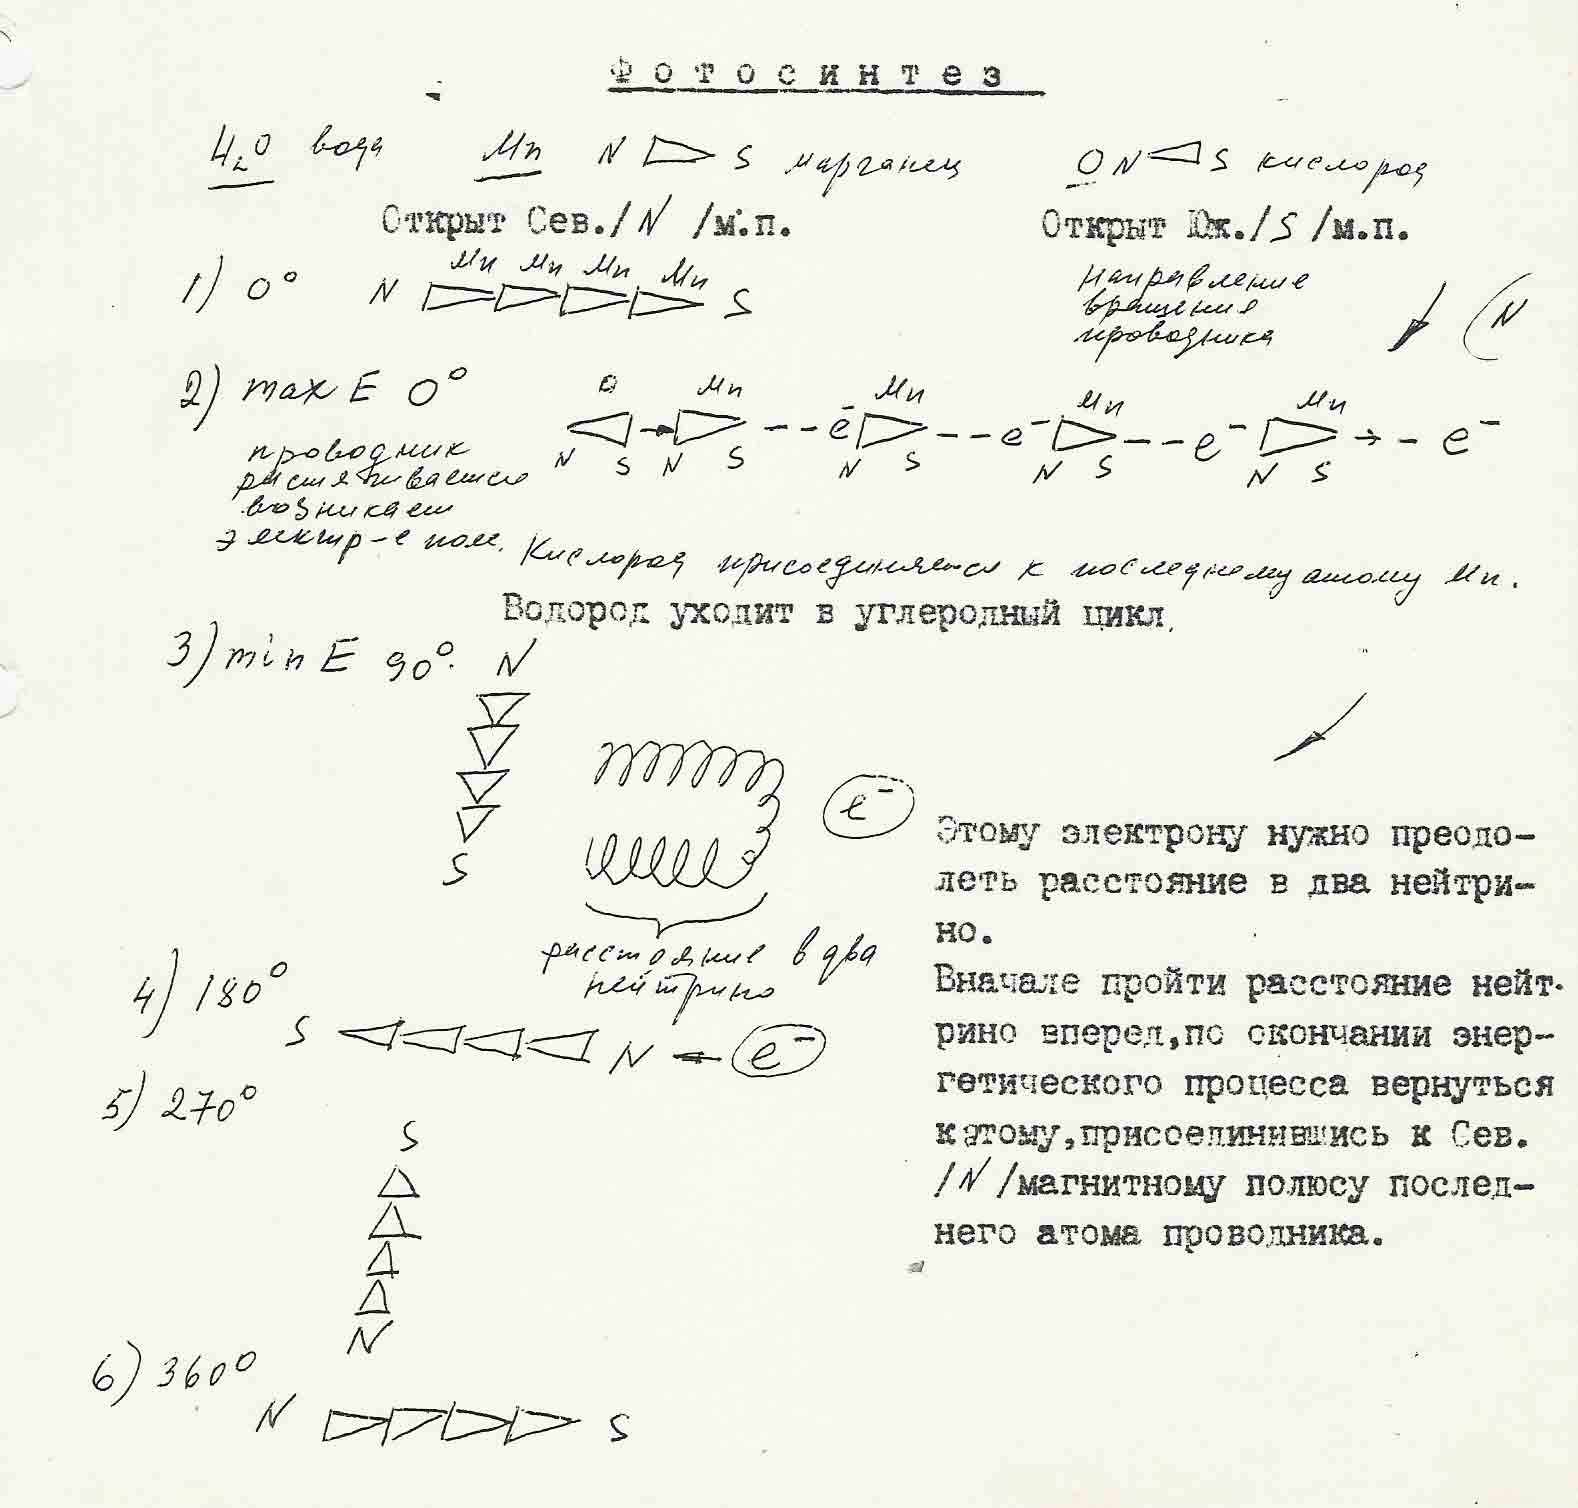 Фотосинтез
H₂O вода Mn N S марганец O N S кислород
Открыт Сев./N/м.п. Открыт Юж./S/м.п.
1) 0° N Mn Mn Mn Mn S
направление
вращения
проводника
N
2) max E 0°
O Mn Mn Mn Mn
e⁻ e⁻ e⁻ e⁻
N S N S N S N S N S
проводник
растягивается
возникает
электр-е поле.
Кислород присоединяется к последнему атому Mn.
Водород уходит в углеродный цикл.
3) min E 90° N
S
e⁻
расстояние в два
нейтрино
Этому электрону нужно преодо-
леть расстояние в два нейтри-
но.
Вначале пройти расстояние нейт-
рино вперед,по окончании энер-
гетического процесса вернуться
к атому,присоединившись к Сев.
/N/магнитному полюсу послед-
него атома проводника.
4) 180°
S N e⁻
5) 270°
S
N
6) 360°
N S